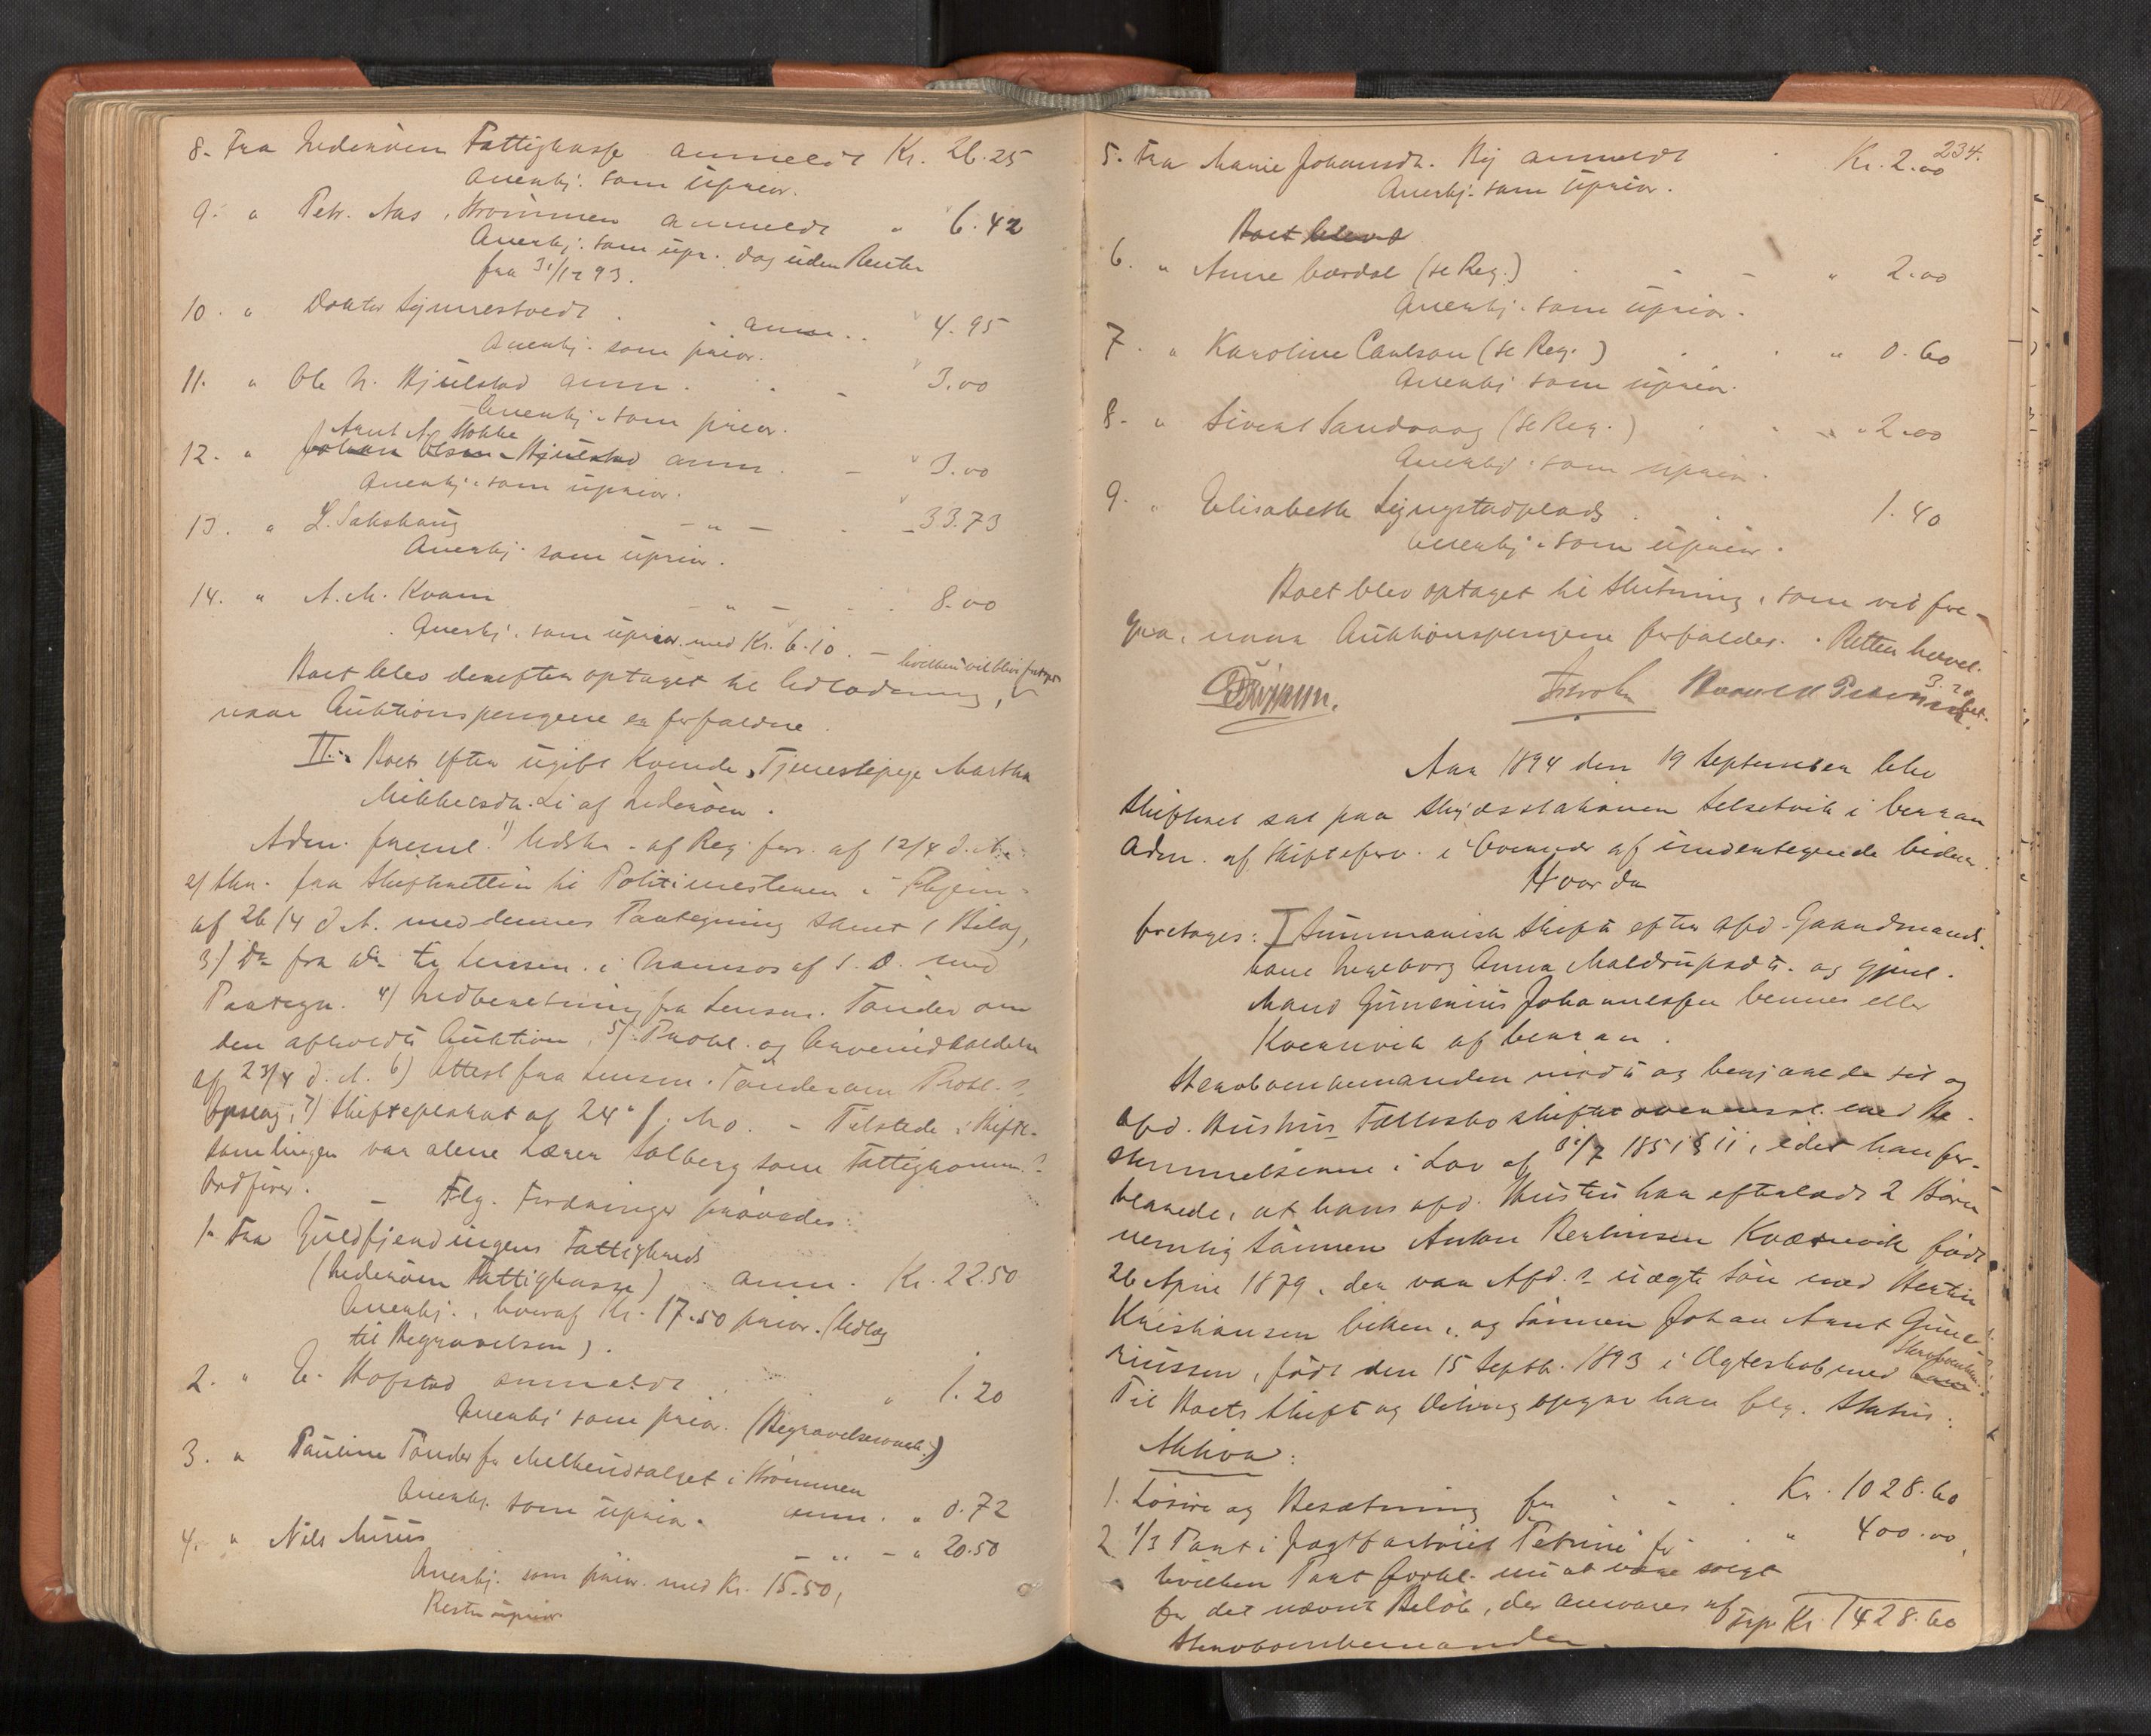 8. Fra Inderøens Fattigkasse anmeldt Kr. 26.25
Anerkj. som uprior.
9. " Petr. Aas, Strømmen anmeldt " 6.42
Anerkj. som upr. dog uden Renter
fra 31/12 93.
10. " Doktor Lynnestvedt anm. " 4.95
Anerkj. som prior.
11. " Ole N. Hjulstad anm. " 3.00
Anerkj. som prior.
Arnt A. Stokke
12. " Johan Olsen Hjulstad anm. - " 3.00
Anerkj. som uprior.
13. " L. Sakshaug - " - - 33.73
Anerkj. som uprior.
14. " A. M. Kvam - " - 8.00
Anerkj. som uprior. med Kr. 6.10. - hvilken vil blive
Boet blev derefter optaget til Udlodning,
naar Auktionspengene er forfaldne.
II. Boet efter ugift Kvinde, Tjenestepige Martha
Mikkelsdr. Li af Inderøen.
Adm. freml. 1) Udskr. af Reg. forr. af 12/4 d. A.
2) Skr. fra Skifteretten til Politimesteren i
af 26/4 d. A. med dennes Paategning samt 1 Bilag,
3) Do fra do til Lensm. i Namsos af s. D. med
Paategn. 4) Indberetning fra Lensm. Tønder om
den afholdte Auktion, 5) Prokl. og
af 23/4 d. A. 6) Attest fra Lensm. Tønder om Prokl.s
Opslag, 7) Skifteplakat af 24 f. Mo. - Tilstede i Skifte-
samlingen var alene Lærer Solberg som Fattigkomm.s
Ordfører. - Flg. Fordringer prøvedes:
1. Fra Guldfjerdingens Fattigkreds
(Inderøens Fattigkasse) anm. Kr. 22.50
Anerkj., hvoraf Kr. 17.50 prior. (Udlæg
til Begravelsen).
2. " E. Hofstad anmeldt " 1.20
Anerkj. som prior. (Begravelsesomk.)
3. " Pauline Tønder for Melkeudsalget i Strømmen
Anerkj. som uprior. anm. " 0.72
4. " Nils Muus - " - " 20.50
Anerkj. som prior. med Kr. 15.50,
Resten uprior.
234.
5. Fra Marie Johannsdr. By anmeldt Kr. 2.00
Anerkj. som uprior.
Boet blev
6. " Anne Værdal (se Reg.) - - " 2.00
Anerkj. som uprior.
7. " Karoline Carlson (se Reg.) " 0.60
Anerkj. som uprior.
8. " Sivert Sandvaag (se Reg.) " 2.00
Anerkj. som uprior.
9. " Elisabeth Lyngstadplads 1.40
Anerkj. som uprior.
Boet blev optaget til Slutning, som vil fore-
gaa, naar Auktionspengene forfalder. Retten hævet.
Aar 1894 den 19 September blev
Skifteret sat paa Skydsstationen Selsetvik i Leraan
Adm. af Skifteforv. i Overvær af undertegnede Vidner.
Hvorda
foretages: I Summarisk Skifte efter afd. Gaardmands-
kone Ingeborg Anna Maldrupsdtr. og gjenl.
Mand Gunerius Johannessen Lennes eller
Kværnvik af Leraan.
Stervboenkemanden mødte og begjærede sit og
afd. Hustrus Fællesbo skiftet overensst. med Be-
stemmelserne i Lov af 31/7 1851 § 11, idet han for-
klarede, at hans afd. Hustru har efterladt 2 Børn
nemlig Sønnen Anton Bertinsen Kværnvik født
26 April 1879, der var Afd.s uægte Søn med Bertin
Kristiansen Viken, og Sønnen Johan Arnt Gune-
riussen, født den 15 Septbr. 1893 i Ægteskab med Stervboenkem.
Til Boets Skifte og Deling opgav han flg. Status:
Aktiva:
1. Løsøre og Besætning for Kr. 1028.60
2. 1/3 Part i Jagtfartøiet "Petrine" for " 400.00,
hvilken Part forkl. nu at være solgt
for det nævnte Beløb, der ansvares af Trp. Kr. 1428.60
Stervboenkemanden.